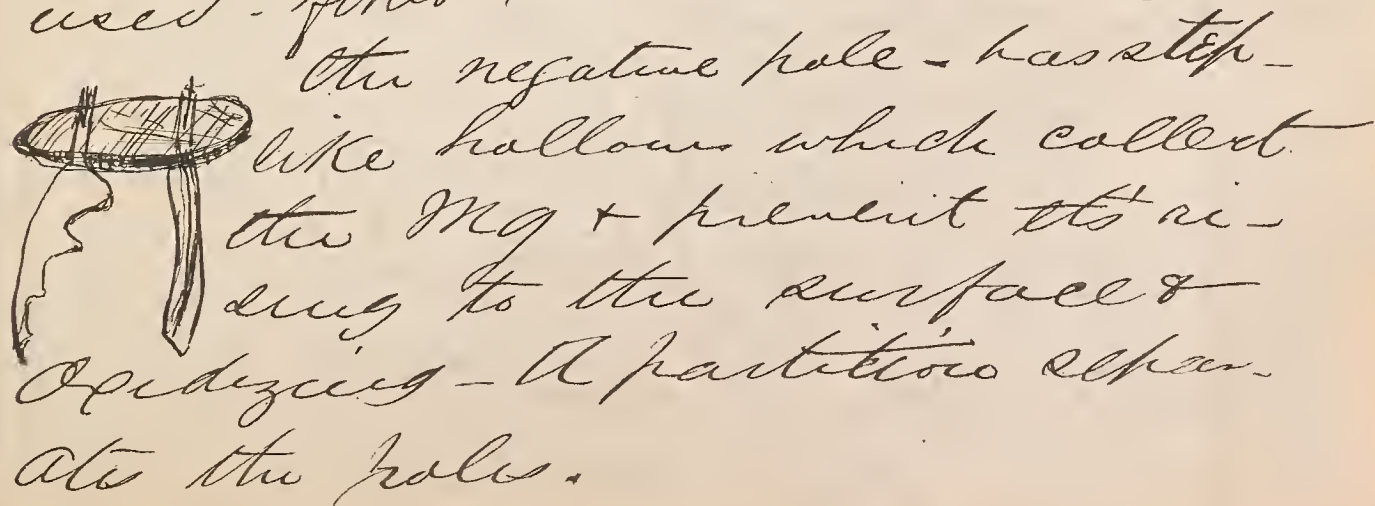 used -
the negative pole - has step-
like hollows which collect
the Mg + prevent it's ri-
sing to the surface &
Oxidizing - A partition separ-
ates the poles.